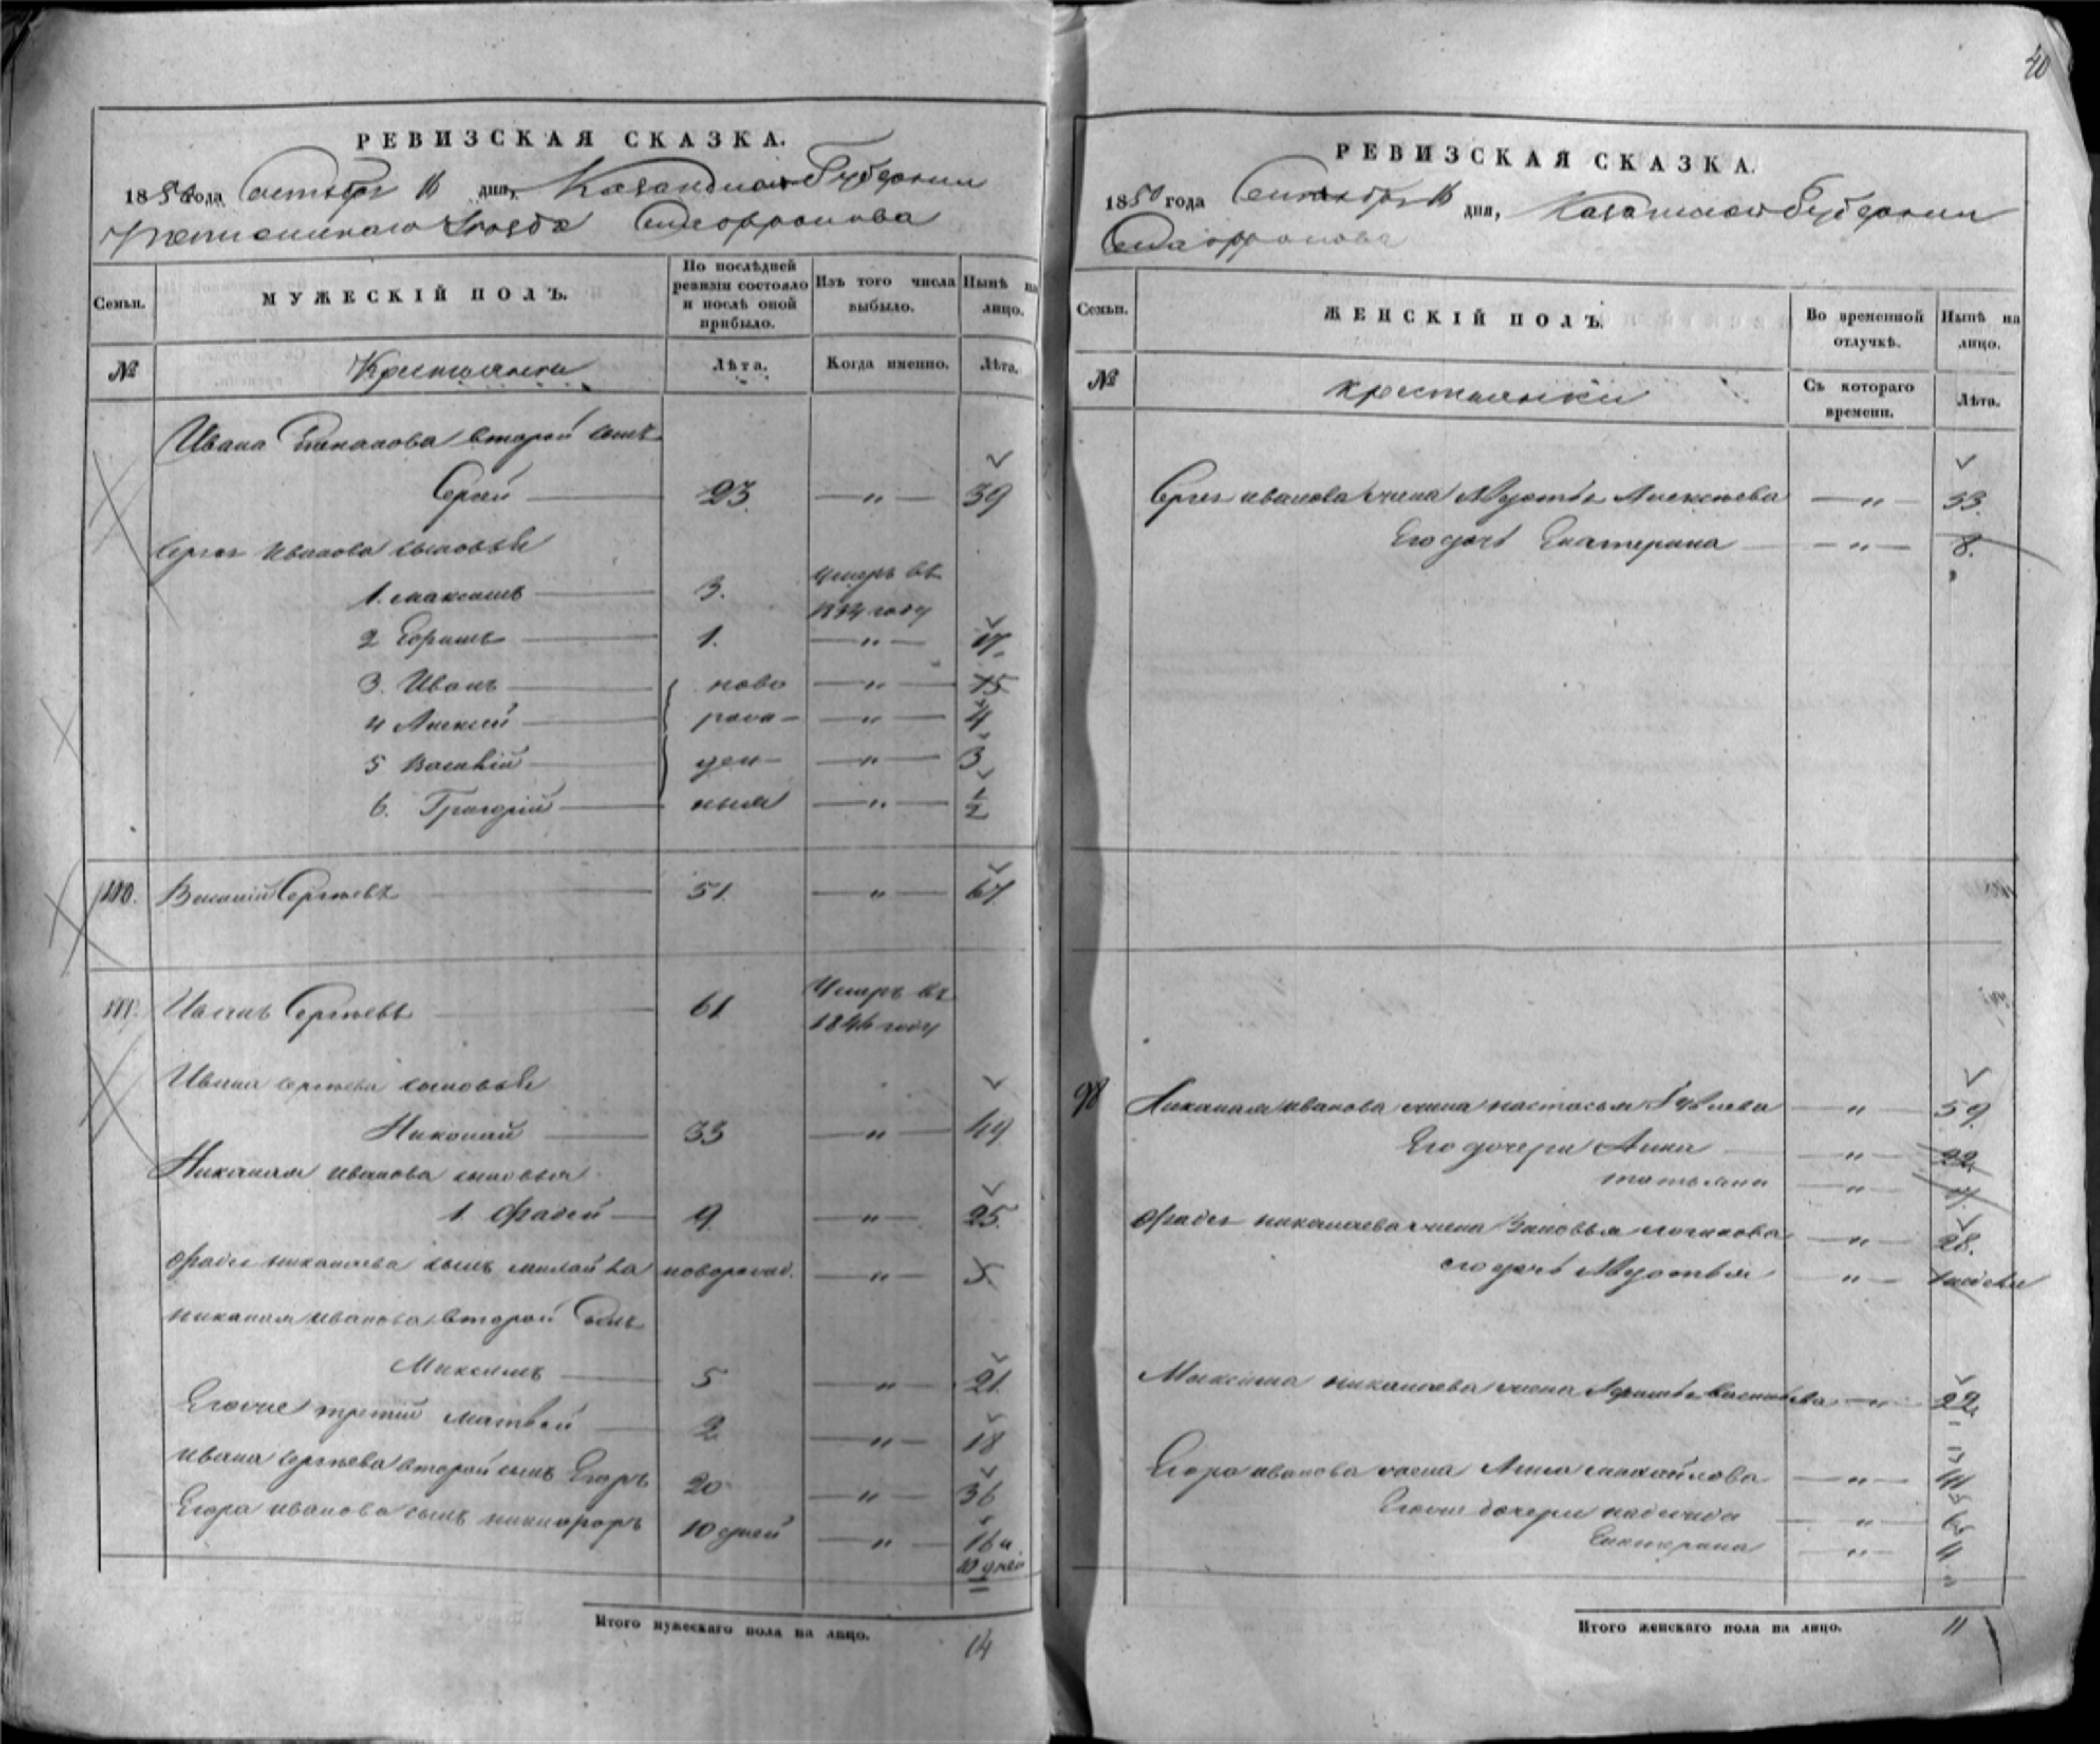 40
РЕВИЗСКАЯ СКАЗКА.
1850 года Октября 16 дня, Казанской Губернии
Уезда
Семьи.
МУЖЕСКІЙ ПОЛЪ.
По послѣдней ревизіи состояло и послѣ оной прибыло.
Изъ того числа выбыло.
Нынѣ на лицо.
№
Крестьяне
Лѣта.
Когда именно.
Лѣта.
Ивана второй сынъ
Сергей 23. — " — 39
Сергея Иванова сыновья
1. Максимъ 3. Умеръ въ
1834 году
2 1. — " — 17.
3. Иванъ ново — " — 15
4 Алексей рож — " — 4
5 Василій ден — " — 3
6. Григорій ныя — " — 1/2
110. Василій Сергѣевъ 51. — " — 67
111. Иванъ Сергѣевъ 61 Умеръ въ
1846 году
Ивана Сергѣева сыновья
Николай 33 — " — 49
Николая Иванова сыновья
1. Фадей 9. — " — 25.
Фадея Николаева сынъ новорожд. — " — 5.
Николая Иванова второй сынъ
Максимъ 5 — " — 21.
Его же третій Матвей 2 — " — 18
Ивана Сергѣева второй сынъ Егоръ 20 — " — 36
Егора Иванова сынъ Никифоръ 10 дней — " — 16 и
10 дней
Итого мужескаго пола на лицо.
14
РЕВИЗСКАЯ СКАЗКА.
1850 года дня, Казанской Губернии
Семьи.
ЖЕНСКІЙ ПОЛЪ.
Во временной отлучкѣ.
Нынѣ на лицо.
№
крестьянки
Съ котораго времени.
Лѣта.
Сергея Иванова жена Алексѣева — " — 33.
Его дочь Екатерина — " — 8.
98 Николая Иванова жена Настасья — " — 59.
Его дочери Анна — " — 22.
Татьяна — " —
Фадея Николаева жена Зиновья — " — 28.
его дочь — " —
Максима Николаева жена Васильева — " — 22.
Егора Иванова жена Анна Михайлова — " — 41
Его же дочери Надежда — " —
Екатерина — " —
Итого женскаго пола на лицо.
11